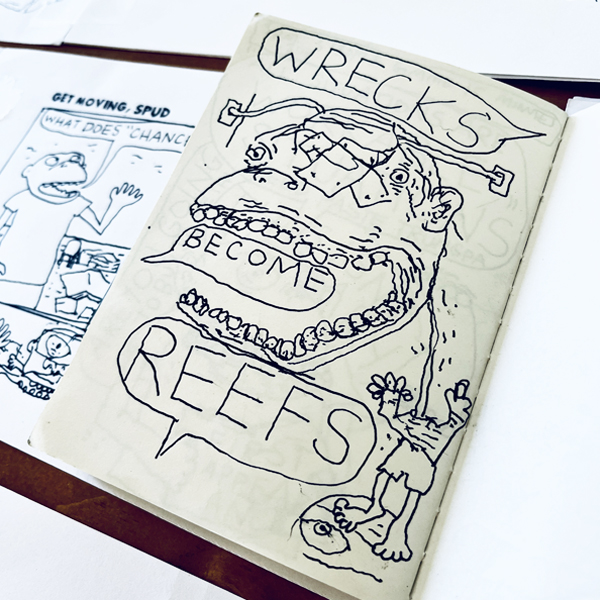 WRECKS
BECOME
REEFS
GET MOVING, SPUD
WHAT DOES "CHANC